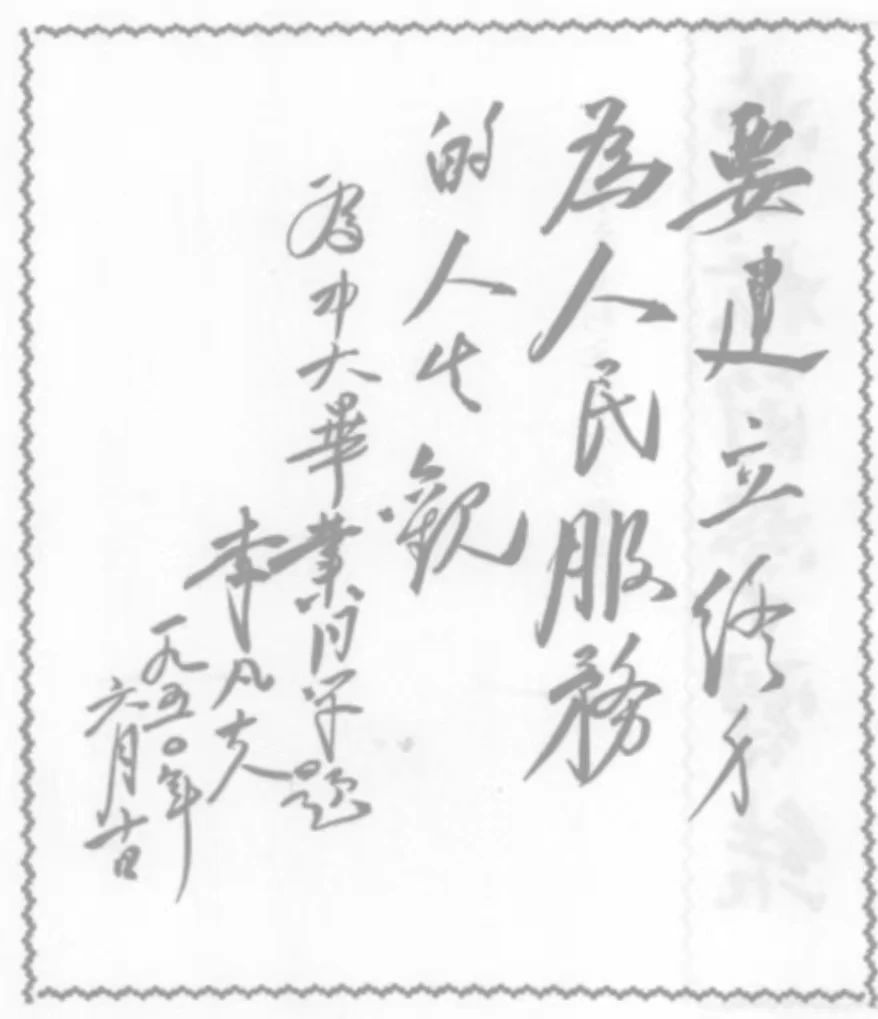 要建立終身
為人民服務
的人生觀
為中大畢業同学題
李凡夫
一九五〇年
六月十日